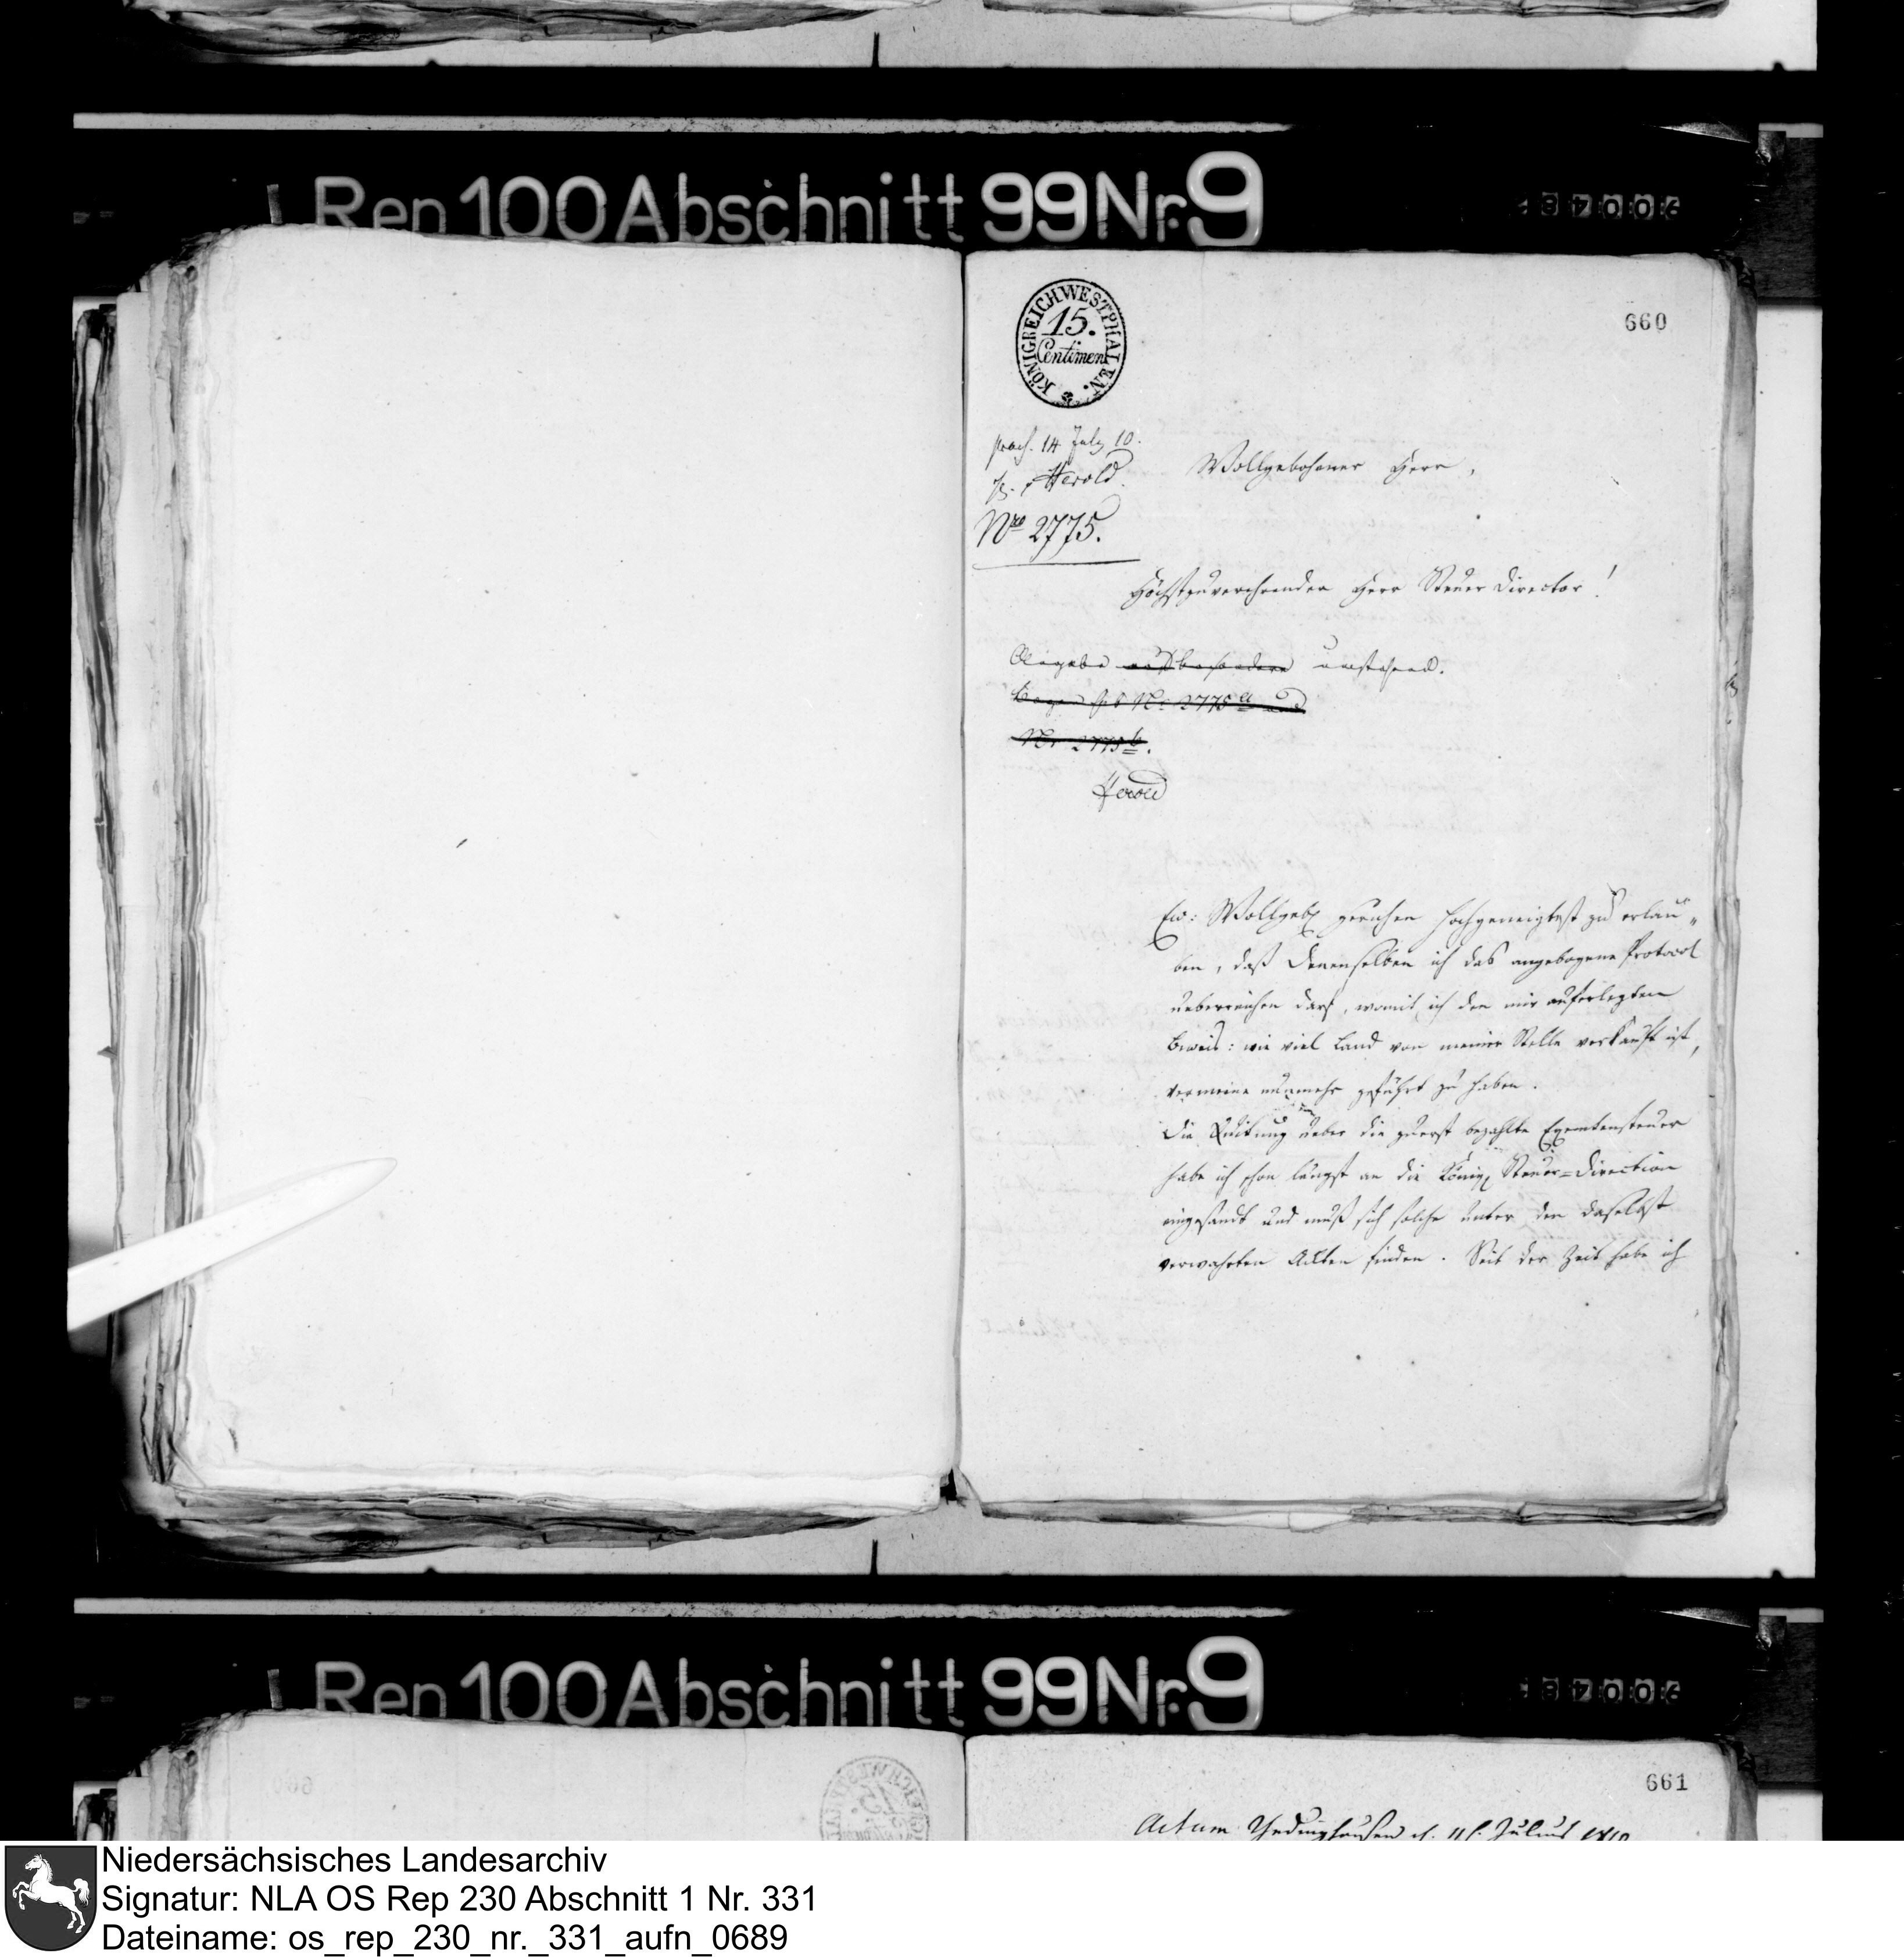 Rep 100 Abschnitt 99 Nr. 9
660
KÖNIGREICH WESTPHALEN.
15.
Centimen
praes. 14 July 10.
Herold
Nro 2775.
Wollgebohrner Herr,
Höchstzuverehrender Herr Steuer Director!
umstehend.
Bogen sub Nr. 2775 a und
Nr. 2775 b.
Herold
Ew: Wollgeb. geruhen hochgeneigtest zu erlau„
ben, daß Denenselben ich das angebogene Protocol
ueberreichen darf, womit ich den mir auferlegten
Beweis: wie viel Land von meiner Stelle verkauft ist,
vermeine nunmehr geführt zu haben.
Die Quitung ueber die zuerst bezahlte Exemtensteuer
habe ich schon längst an die Königl. Steuer=Direction
eingesandt und muß sich solche unter den daselbst
verwahrten Ackten finden. Seit der Zeit habe ich
Rep 100 Abschnitt 99 Nr. 9
661
Actum d. 11t. Julius 1810
Niedersächsisches Landesarchiv
Signatur: NLA OS Rep 230 Abschnitt 1 Nr. 331
Dateiname: os_rep_230_nr._331_aufn_0689